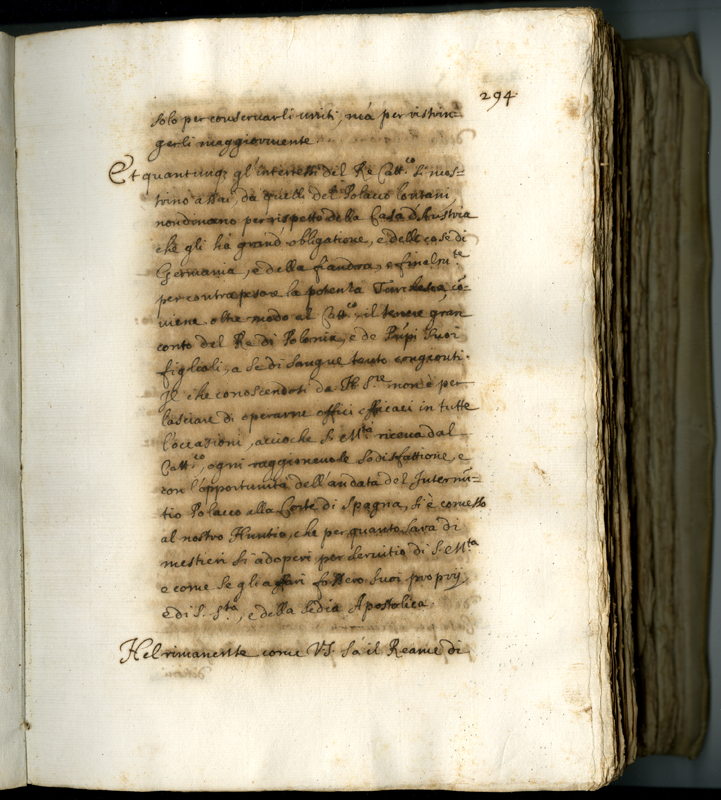 294
solo per conservarli uniti, mà per ristrin=
gerli maggiormente.
Et quantunq; gl'interessi del Re Catt.co si mos=
trino assai, da quelli del Polacco lontani,
nondimeno per rispetto della Casa d'Austria
che gli hà grand'obligatione, e delle cose di
Germania, e della fiandra, e finalm.te
per contrapesare la potenza Turchesca, cō=
viene oltre modo al Catt.co, il tenere gran
conto del Re di Polonia, e de Prīpi suoi
figliuoli, a se di sangue tanto congionti.
Il che conoscendosi da N. S.re non è per
lasciare di operarne offici efficaci in tutte
l'occasioni, acciochè S. M.tà riceva dal
Catt.co, ogni raggionevole sodisfattione, e
con l'opportunità dell'andata del Internū=
tio Polacco alla Corte di Spagna, si è comesso
al nostro Nuntio, che per quanto sarà di
mestieri si adoperi per servitio di S. M.tà
e come se gli affari fossero suoi proprij,
e di S. S.tà, e della Sedia Apostolica.
Nel rimanente come V.S. sà il Reame di